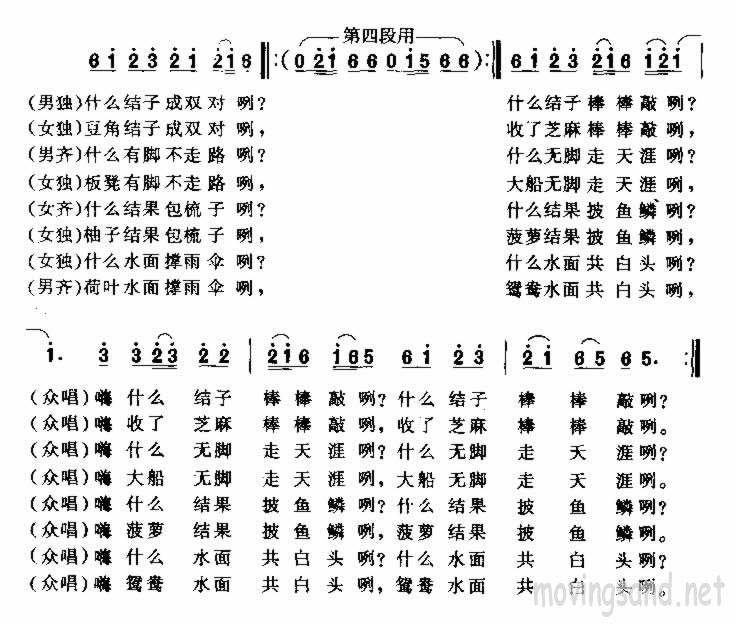 第四段用
6 1 2 3 2 1 2 1 6 :( 0 2 1 6 6 0 1 5 6 6 ): 6 1 2 3 2 1 6 1 2 1
(男独)什么结子成双对咧? 什么结子棒棒敲咧?
(女独)豆角结子成双对咧, 收了芝麻棒棒敲咧,
(男齐)什么有脚不走路咧? 什么无脚走天涯咧?
(女独)板凳有脚不走路咧, 大船无脚走天涯咧,
(女齐)什么结果包梳子咧? 什么结果披鱼鳞咧?
(女独)柚子结果包梳子咧, 菠萝结果披鱼鳞咧,
(女独)什么水面撑雨伞咧? 什么水面共白头咧?
(男齐)荷叶水面撑雨伞咧, 鸳鸯水面共白头咧,
1. 3 3 2 3 2 2 2 1 6 1 6 5 6 1 2 3 2 1 6 5 6 5. :
(众唱)嗨什么结子棒棒敲咧?什么结子棒棒敲咧?
(众唱)嗨收了芝麻棒棒敲咧,收了芝麻棒棒敲咧。
(众唱)嗨什么无脚走天涯咧?什么无脚走天涯咧?
(众唱)嗨大船无脚走天涯咧,大船无脚走天涯咧。
(众唱)嗨什么结果披鱼鳞咧?什么结果披鱼鳞咧?
(众唱)嗨菠萝结果披鱼鳞咧,菠萝结果披鱼鳞咧。
(众唱)嗨什么水面共白头咧?什么水面共白头咧?
(众唱)嗨鸳鸯水面共白头咧,鸳鸯水面共白头咧。
movingsand.net